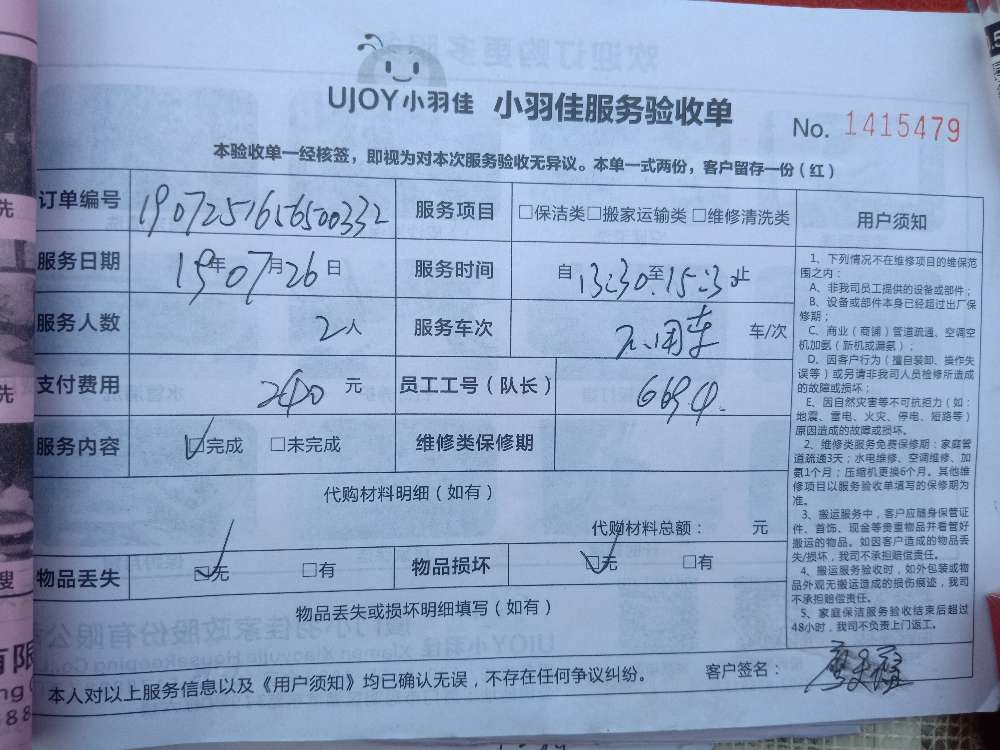 UJOY小羽佳 小羽佳服务验收单
No. 1415479
本验收单一经核签，即视为对本次服务验收无异议。本单一式两份，客户留存一份（红）
订单编号 1907251656500332 服务项目 □保洁类□搬家运输类 □维修清洗类
服务日期 19年07月26日 服务时间 自13:30至15:30止
服务人数 2人 服务车次 不用车 车/次
支付费用 元 员工工号（队长）
服务内容 ☑完成 □未完成 维修类保修期
代购材料明细（如有）
代购材料总额： 元
物品丢失 ☑无 □有 物品损坏 ☑无 □有
物品丢失或损坏明细填写（如有）
本人对以上服务信息以及《用户须知》均已确认无误，不存在任何争议纠纷。 客户签名：
用户须知
1、下列情况不在维修项目的维保范
围之内：
A、非我司员工提供的设备或部件；
B、设备或部件本身已经超过出厂保
修期；
C、商业（商铺）管道疏通、空调空
机加氨（新机或漏氨）；
D、因客户行为（擅自装卸、操作失
误等）或另请非我司人员检修所造成
的故障或损坏；
E、因自然灾害等不可抗拒力（如：
地震、雷电、火灾、停电、短路等）
原因造成的故障或损坏。
2、维修类服务免费保修期：家庭管
道疏通3天；水电维修、空调维修、加
氨1个月；压缩机更换6个月。其他维
修项目以服务验收单填写的保修期为
准。
3、搬运服务中，客户应随身保管证
件、首饰、现金等贵重物品并看管好
搬运的物品。如因客户造成的物品丢
失/损坏，我司不承担赔偿责任。
4、搬运服务验收时，如外包装或物
品外观无搬运造成的损伤痕迹，我司
不承担赔偿责任。
5、家庭保洁服务验收结束后超过
48小时，我司不负责上门返工。